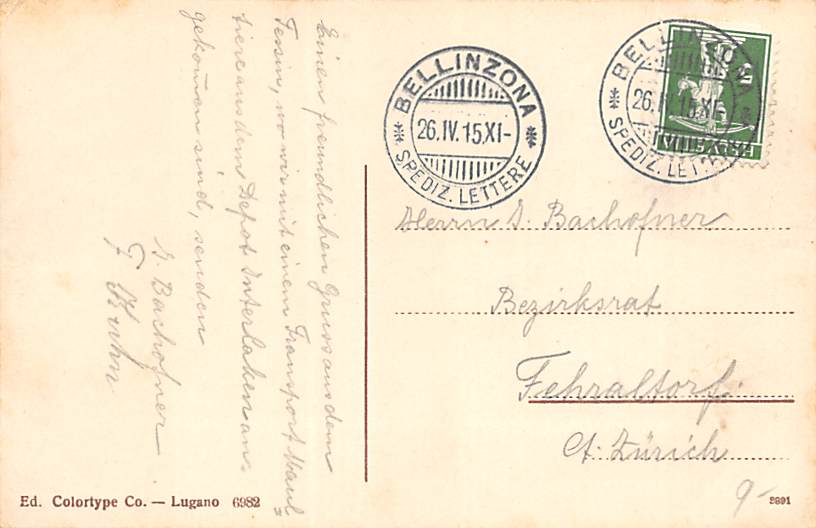 Einen freundlichen Gruss aus dem
Tessin, wo wir mit einem Transport Maul=
tiere aus dem Depot Interlaken an-
gekommen sind, senden
J Bachofner
F Kuhn
BELLINZONA
26.IV.15.XI-
SPEDIZ. LETTERE
BELLINZONA
26.IV.15.XI-
SPEDIZ. LETTERE
HELVETIA
Herrn J. Bachofner
Bezirksrat
Fehraltorf.
Ct. Zürich
9-
Ed. Colortype Co. — Lugano 6982